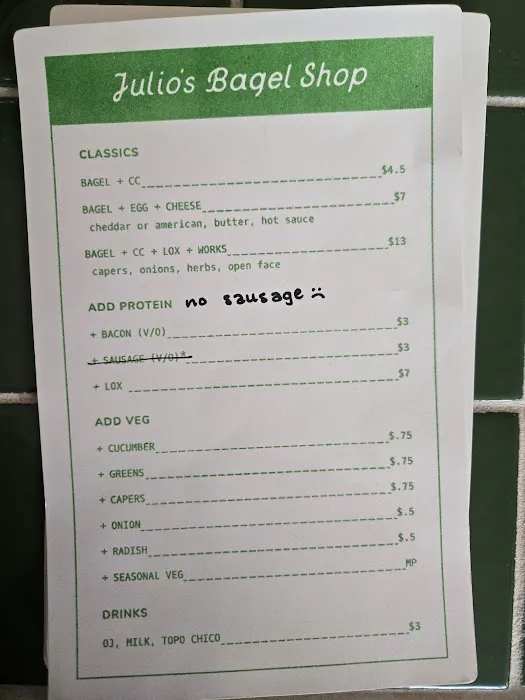 Julio's Bagel Shop
CLASSICS
BAGEL + CC $4.5
BAGEL + EGG + CHEESE $7
cheddar or american, butter, hot sauce
BAGEL + CC + LOX + WORKS $13
capers, onions, herbs, open face
ADD PROTEIN no sausage :(
+ BACON (V/O) $3
+ SAUSAGE (V/O)* $3
+ LOX $7
ADD VEG
+ CUCUMBER $.75
+ GREENS $.75
+ CAPERS $.75
+ ONION $.5
+ RADISH $.5
+ SEASONAL VEG MP
DRINKS
OJ, MILK, TOPO CHICO $3